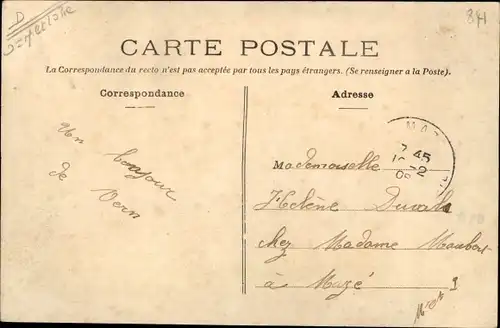 CARTE POSTALE
La Correspondance du recto n'est pas acceptée par tous les pays étrangers. (Se renseigner a la Poste).
Correspondance
Adresse
Un bonjour
de Vern
MAZ
7 45
Mademoiselle
Hélène Duval
chez Madame
à Mazé